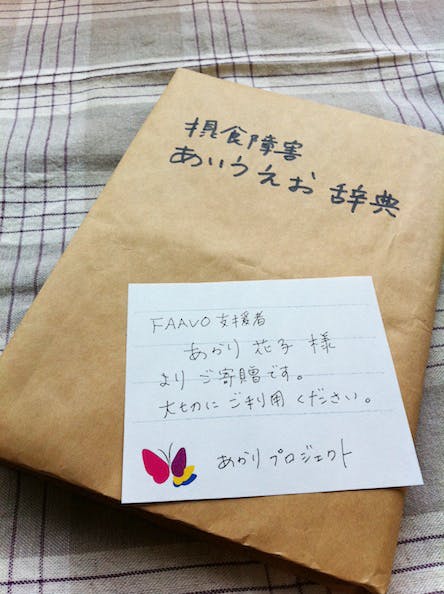 摂食障害
あいうえお 辞典
FAAVO 支援者
あかり 花子 様
より ご寄贈です。
大切に ご利用 ください。
あかり プロジェクト